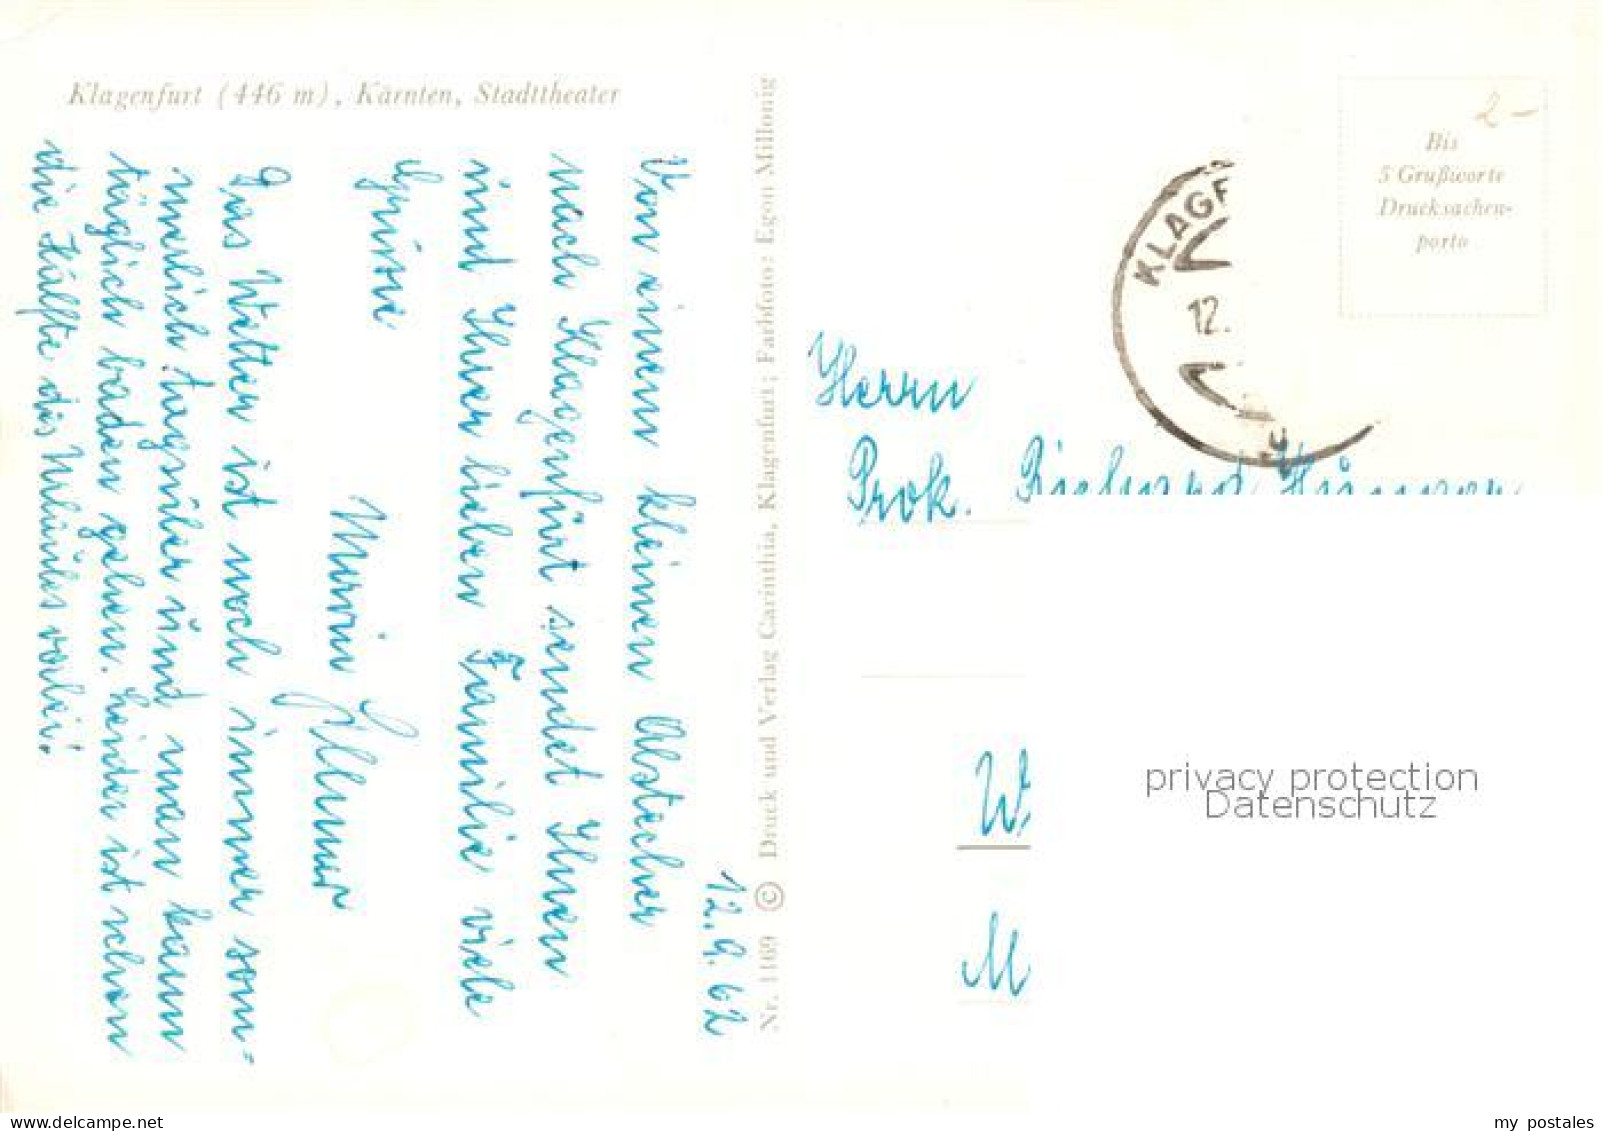 Klagenfurt (446 m), Kärnten, Stadttheater
12.9.62
Von einem kleinen Abstecher
nach Klagenfurt sendet Ihnen
und Ihrer lieben Familie viele
Grüsse
Das Wetter ist noch immer som-
merlich tagsüber und man kann
täglich baden gehen. Leider ist schon
die Hälfte des Urlaubes vorbei!
Nr. 1169 © Druck und Verlag Carinthia, Klagenfurt; Farbfoto: Egon Millonig
Bis
5 Grußworte
Drucksachen-
porto
2 –
KLAGE
12.
Herrn
Prok. Richard
W.
M
privacy protection
Datenschutz
www.delcampe.net
my postales